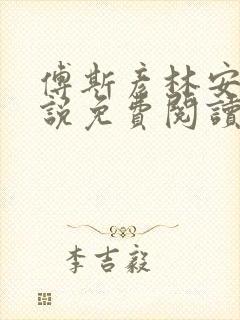 傅斯彦林安
說免費閱讀
李吉毅